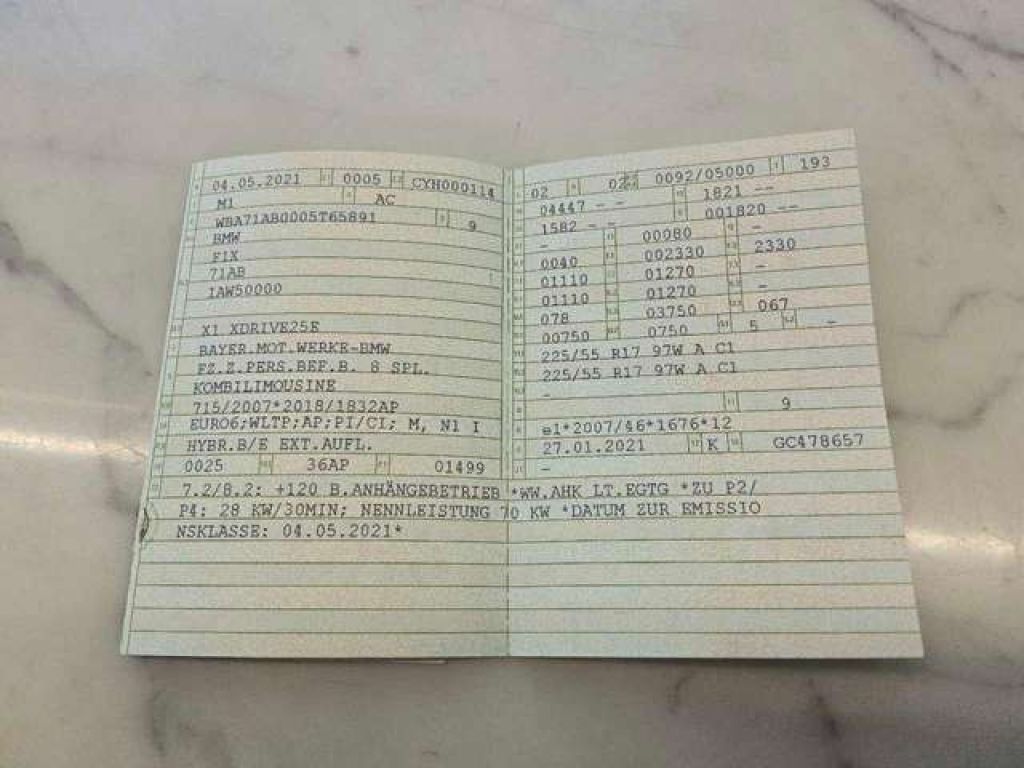 04.05.2021 0005 CYH000114
M1 AC
WBA71AB0005T65891 9
BMW
F1X
71AB
IAW50000
X1 XDRIVE25E
BAYER.MOT.WERKE-BMW
FZ.Z.PERS.BEF.B. 8 SPL.
KOMBILIMOUSINE
715/2007*2018/1832AP
EURO6;WLTP;AP;PI/CI; M, N1 I
HYBR.B/E EXT.AUFL.
0025 36AP 01499
02 02 0092/05000 193
04447 - - 1821 --
1582 - - 001820 --
- 00080 -
0040 002330 2330
01110 01270 -
01110 01270 -
078 03750 067
00750 0750 5 -
225/55 R17 97W A C1
225/55 R17 97W A C1
-
9
e1*2007/46*1676*12
27.01.2021 K GC478657
-
7.2/8.2: +120 B.ANHÄNGEBETRIEB *WW.AHK LT.EGTG *ZU P2/
P4: 28 KW/30MIN; NENNLEISTUNG 70 KW *DATUM ZUR EMISSIO
NSKLASSE: 04.05.2021*